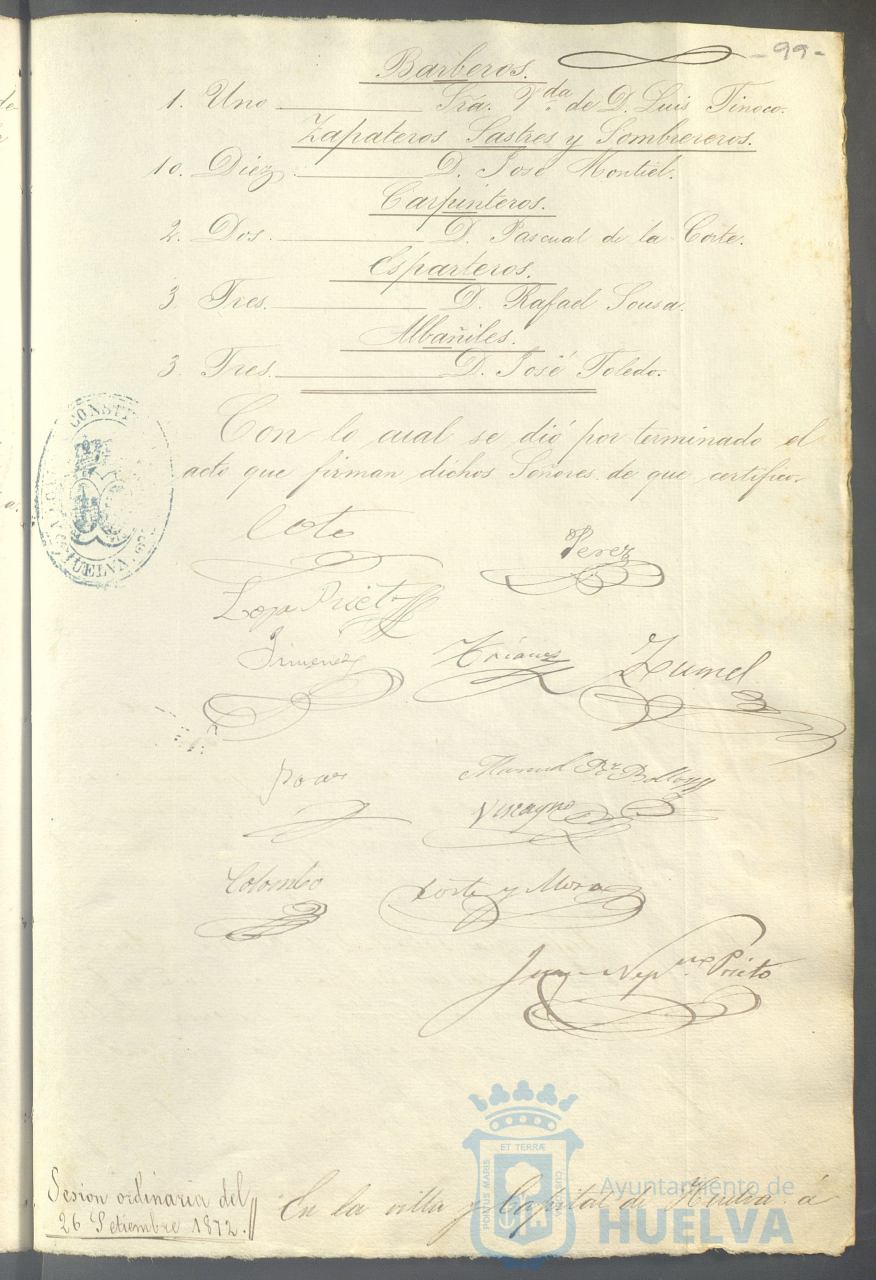 - 99 -
Barberos.
1. Uno Sra. V.da de D. Luis Tinoco.
Zapateros Sastres y Sombrereros.
10. Diez. D. José Montiel.
Carpinteros.
2. Dos. D. Pascual de la Corte.
Esparteros.
3 Tres. D. Rafael Sousa.
Albañiles.
3. Tres. D. José Toledo.
Con lo cual se dió por terminado el
acto que firman dichos Señores de que certifico.
CONSTI
HUELVA
Coto
Perez
Lopez Prieto
Jimenez Zumel
Manuel
Vizcayno
Colombo Corte y Mora
Juan Nep.no Prieto
Sesion ordinaria del
26 Setiembre 1872.
En la villa y Capital de Huelva á
PORTUS MARIS ET TERRÆ CUSTODIA
Ayuntamiento de
HUELVA